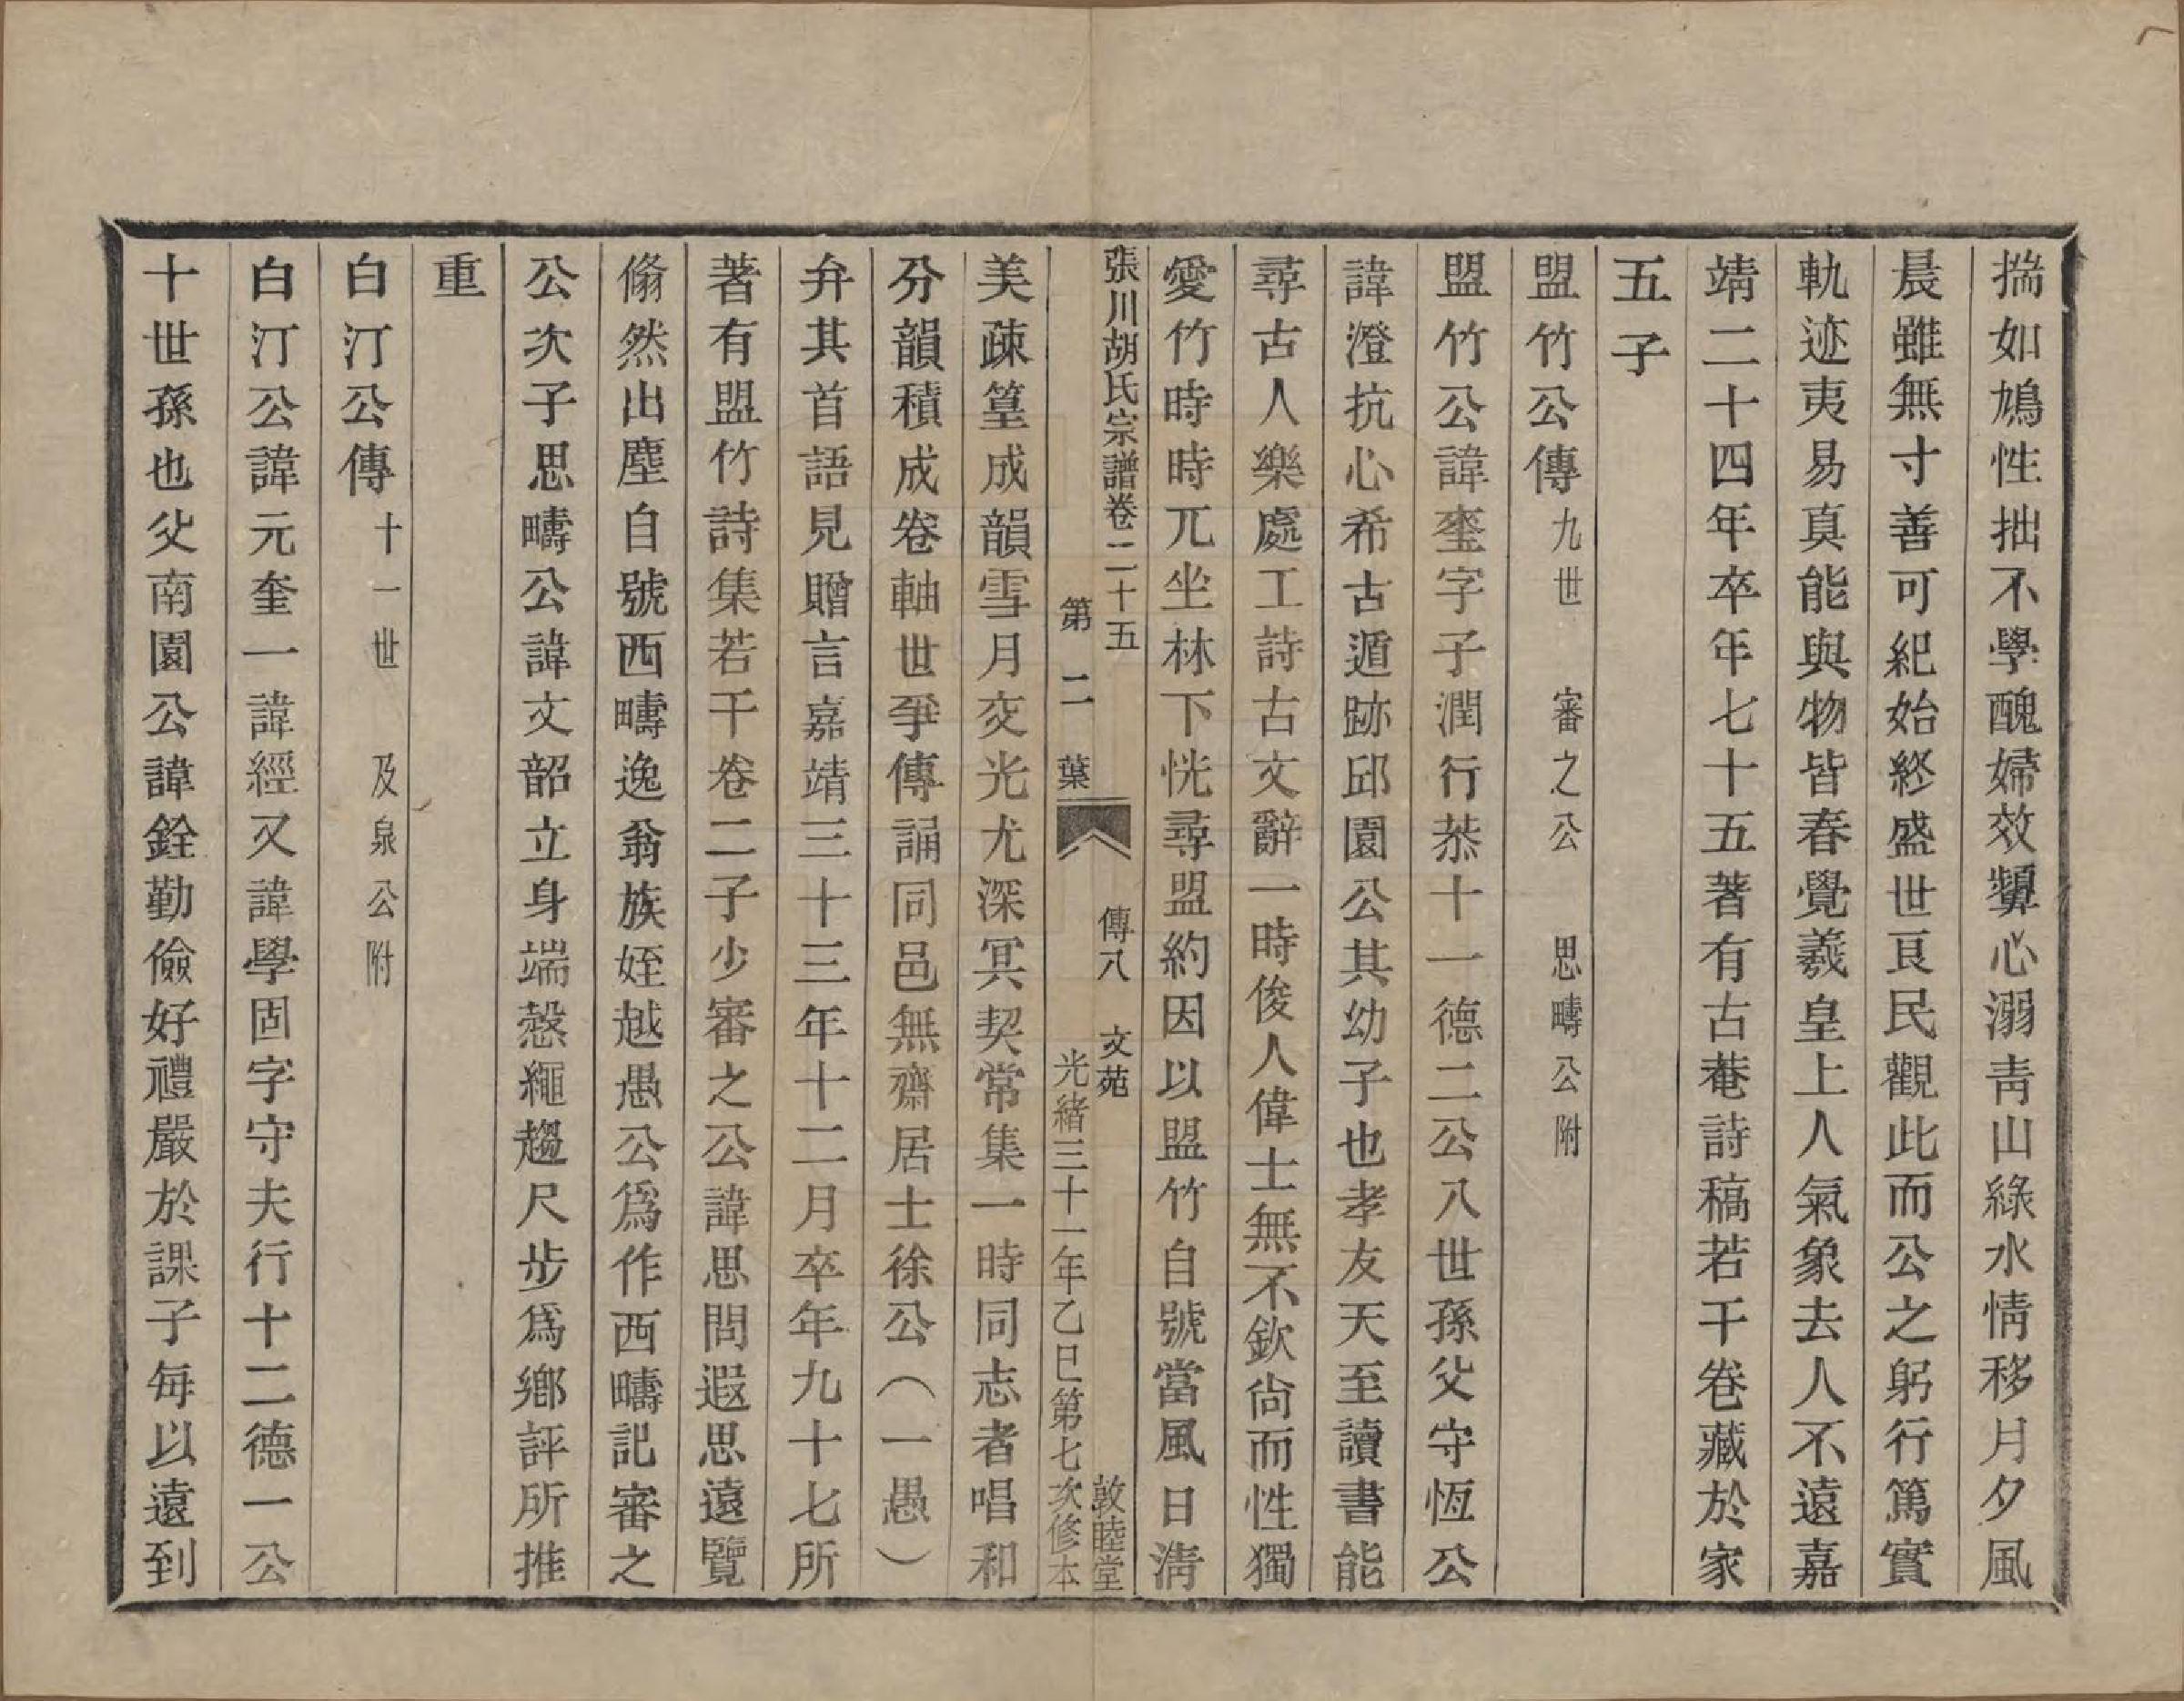 揣如鳩性拙不學醜婦效顰心溺靑山綠水情移月夕風
晨雖無寸善可紀始終盛世良民觀此而公之躬行篤實
軌迹夷易真能與物皆春覺羲皇上人氣象去人不遠嘉
靖二十四年卒年七十五著有古菴詩稿若干卷藏於家
五子
盟竹公傳 九世 審之公 思疇公附
盟竹公諱㙓字子潤行恭十一德二公八世孫父守恆公
諱澄抗心希古遁跡邱園公其幼子也孝友天至讀書能
尋古人樂處工詩古文辭一時俊人偉士無不欽尙而性獨
愛竹時時兀坐林下恍尋盟約因以盟竹自號當風日淸
張川胡氏宗譜卷二十五 傳八 文苑 敦睦堂
第二葉 光緒三十一年乙巳第七次修本
美疎篁成韻雪月交光尤深冥契常集一時同志者唱和
分韻積成卷軸世爭傳誦同邑無齋居士徐公（一愚）
弁其首語見贈言嘉靖三十三年十二月卒年九十七所
著有盟竹詩集若干卷二子少審之公諱思問遐思遠覽
翛然出塵自號西疇逸翁族姪越愚公爲作西疇記審之
公次子思疇公諱文韶立身端慤繩趨尺步爲鄉評所推
重
白汀公傳 十一世 及泉公附
白汀公諱元奎一諱經又諱學固字守夫行十二德一公
十世孫也父南園公諱銓勤儉好禮嚴於課子每以遠到